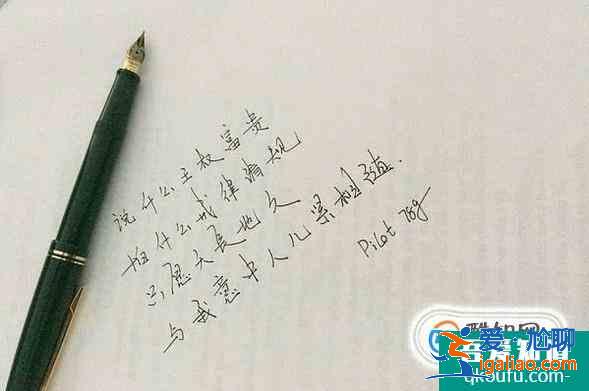 说什么王权富贵
怕什么戒律清规
只愿天长地久
与我意中人儿紧相随.
Pilot 78g
爱尴聊
igaliao.com